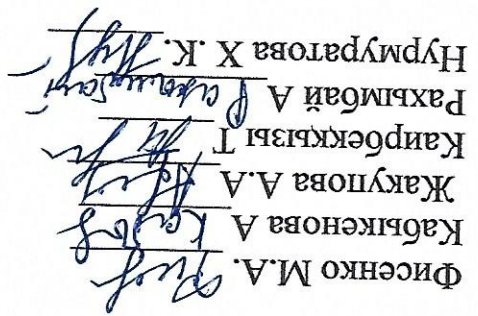 Фисенко М.А.
Кабыкенова А
Жакупова А.А
Каирбекқызы Т
Рахымбай А Рахымбай
Нурмуратова Х .К.